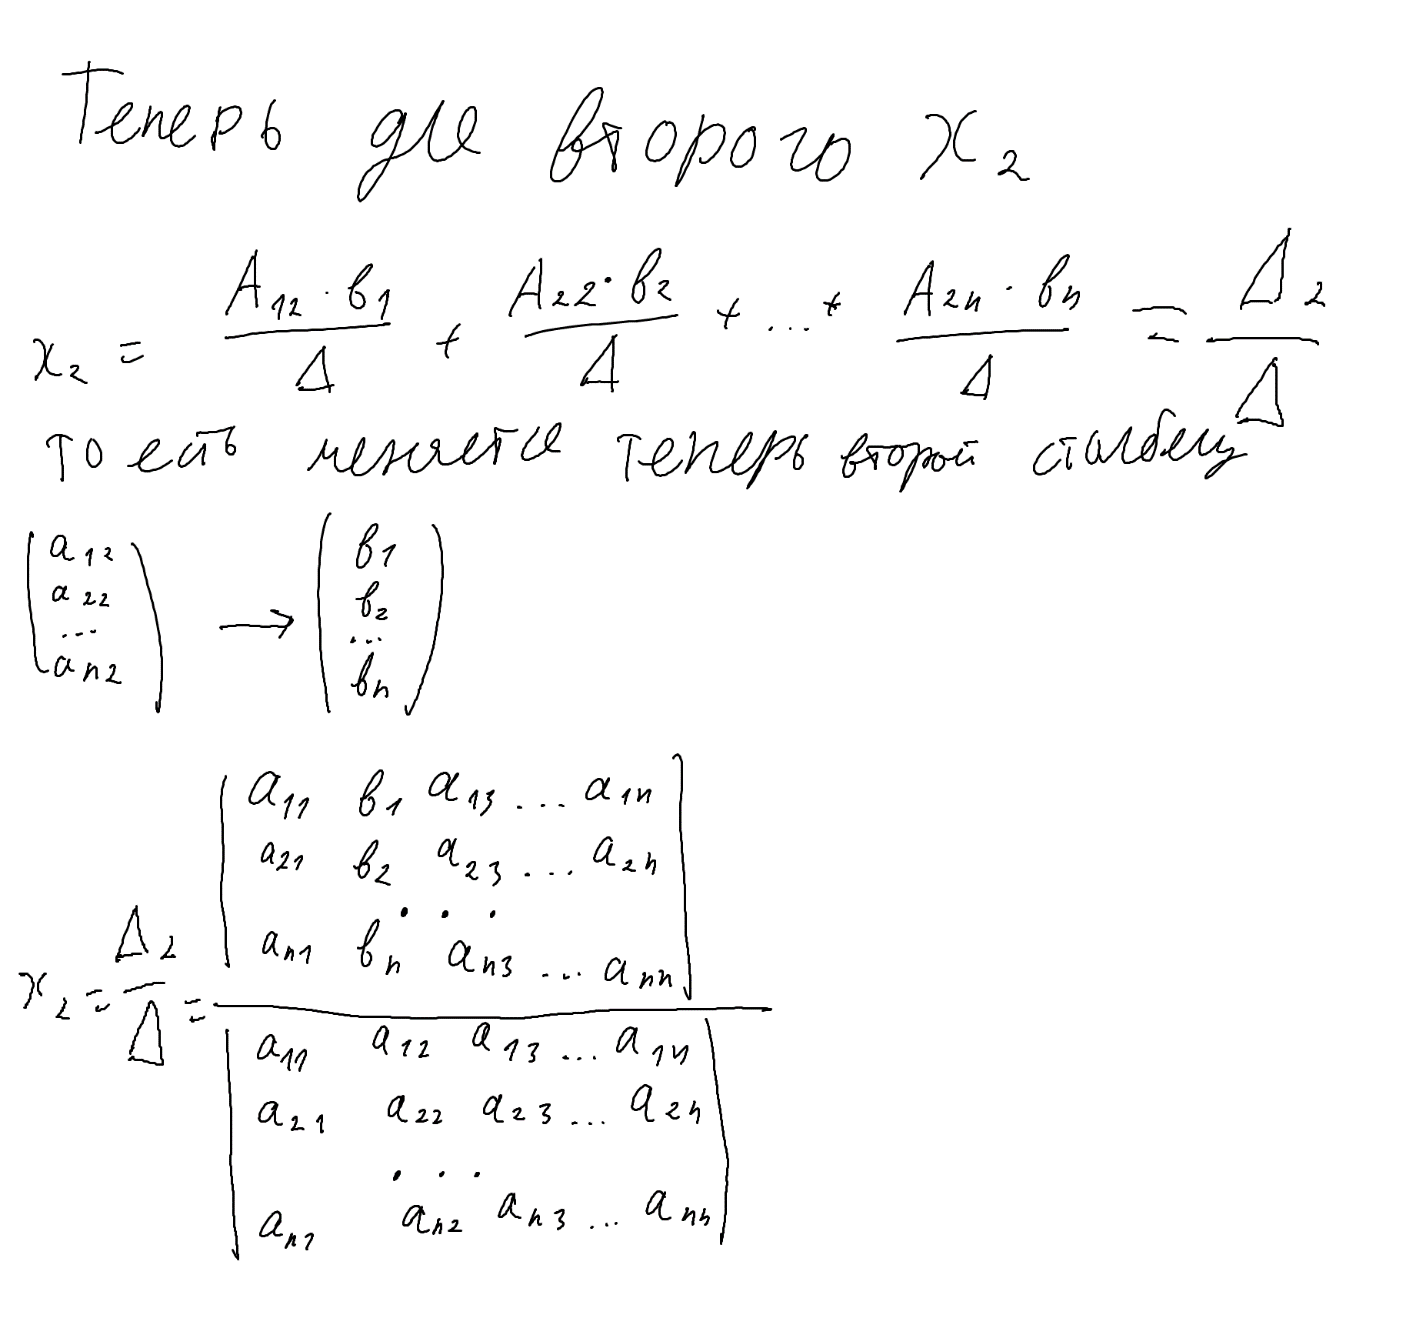 Теперь для второго x₂
x₂ = A₁₂·в₁/Δ + A₂₂·в₂/Δ + ... + A₂ₙ·вₙ/Δ = Δ₂/Δ
то есть меняется теперь второй столбец
(a₁₂ a₂₂ ... aₙ₂) → (в₁ в₂ ... вₙ)
a₁₁ в₁ a₁₃ ... a₁ₙ
a₂₁ в₂ a₂₃ ... a₂ₙ
. . .
aₙ₁ вₙ aₙ₃ ... aₙₙ
x₂ = Δ₂/Δ =
a₁₁ a₁₂ a₁₃ ... a₁ₙ
a₂₁ a₂₂ a₂₃ ... a₂ₙ
. . .
aₙ₁ aₙ₂ aₙ₃ ... aₙₙ